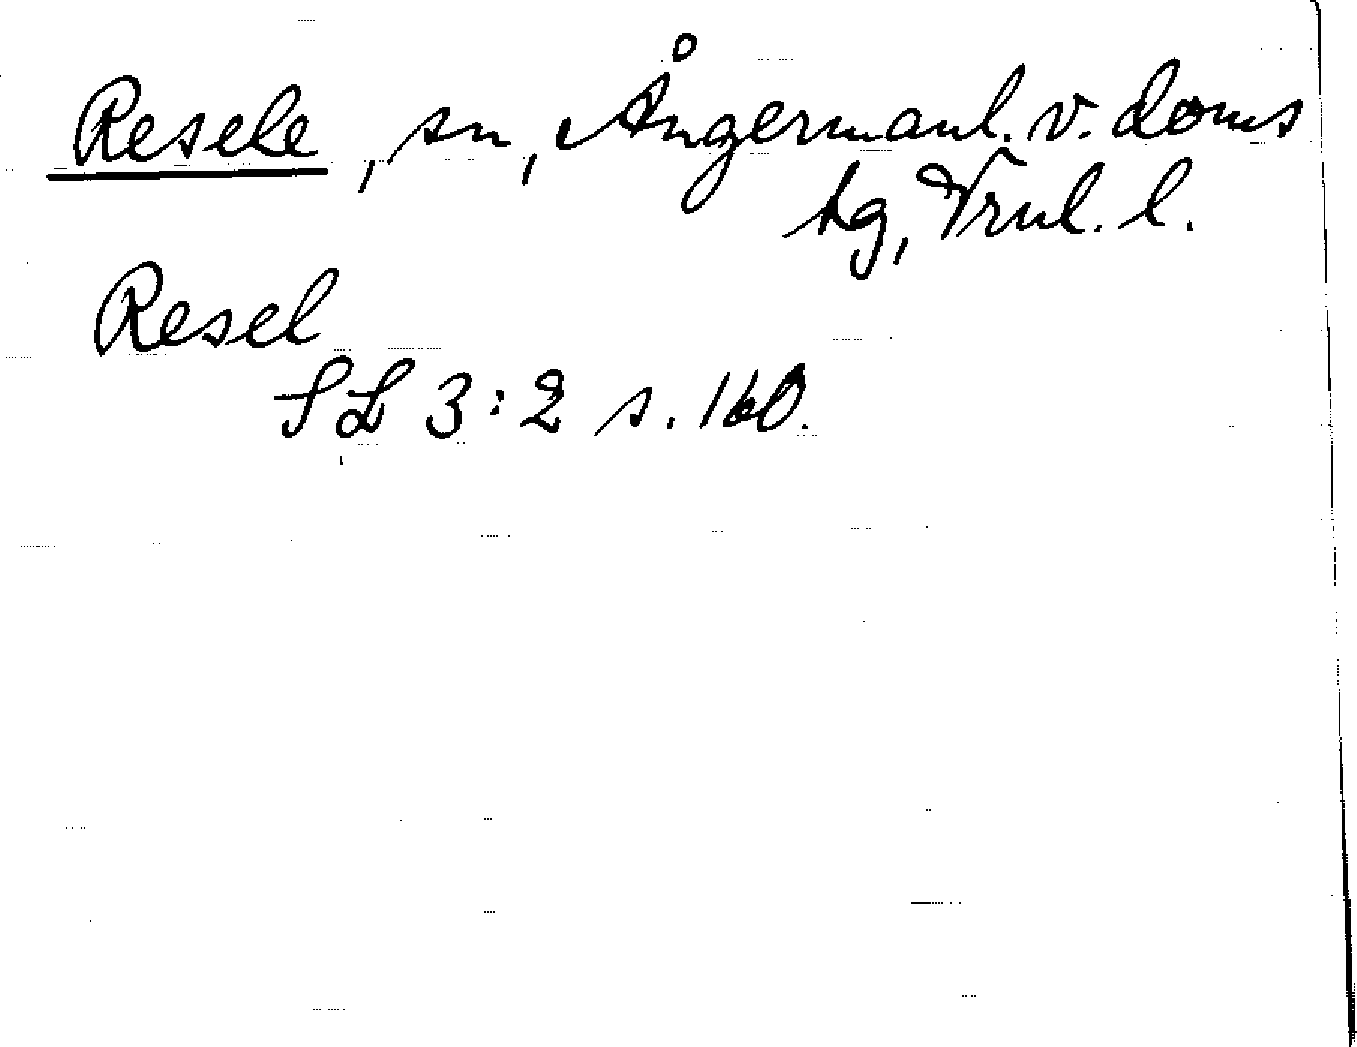 Resele, sn, Ångermanl. v. doms
hg, Vrnl. l.
Resel
SL 3:2 s. 160.